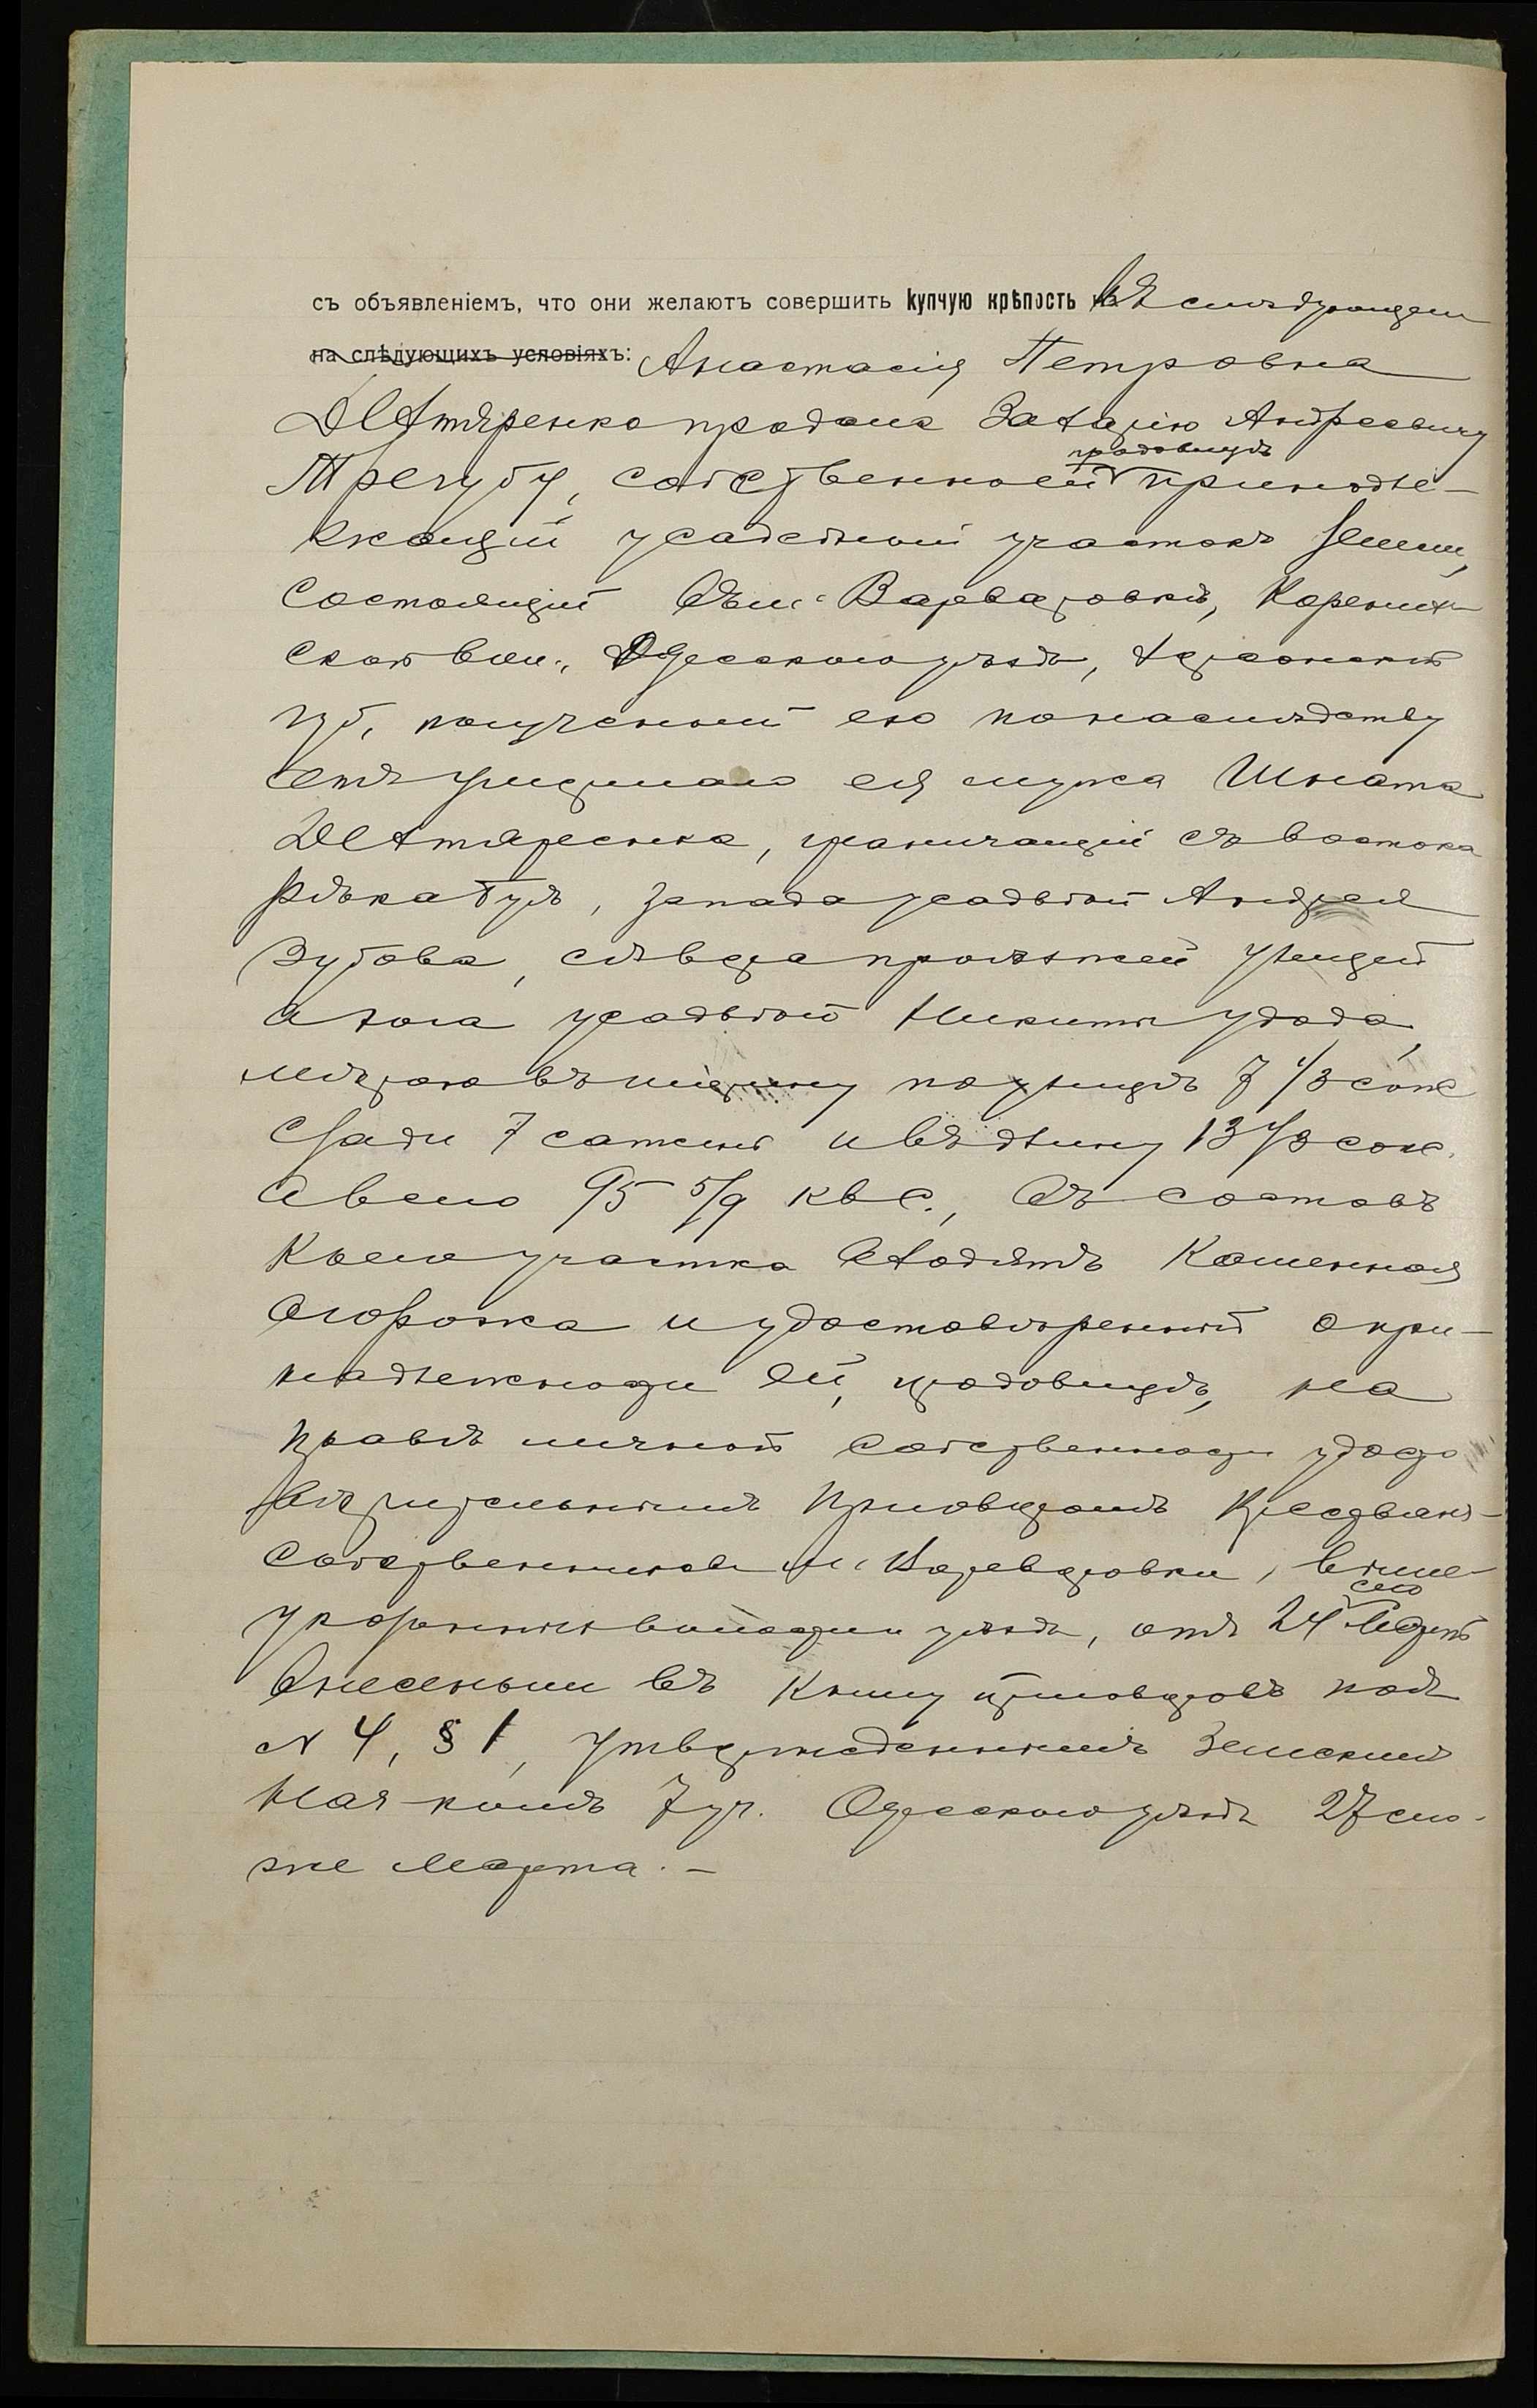 съ объявленіемъ, что они желаютъ совершить купчую крѣпость въ слѣдующем
на слѣдующихъ условіяхъ: Анастасія Петровна
Дехтяренко продала Захарію Андреевичу
продавицѣ
Трегубу, собственной принадле-
жащій усадебный участокъ земли,
состоящій въ м. Варваровкѣ,
ской вол., Одесскаго уѣзда, Херсонской
губ, полученный ею по наслѣдству
отъ умершаго ея мужа Игната
Дехтяренка, граничащій съ востока
рѣка Бугъ, запада усадьбой Андрея
Зубова, сѣвера проѣзжей улицей
а юга усадьбой Никиты Удода,
мѣрою въ ширину по улицѣ 7 1/3 саж
сзади 7 сажень и въ длину 13 1/3 саж.
а всего 95 5/9 кв с., въ составъ
коего участка входятъ каменная
огорожа и удостовѣренный о при-
надлежности ей, продавицѣ, на
правѣ личной собственности удосто
вѣрительнымъ приговоромъ крестьянъ-
собственниковъ м. Варваровки, выше-
сего
указанныхъ волости уѣзда, отъ 24 Марта
внесеннымъ въ книгу приговоровъ подъ
N 4, § 1, утвержденнымъ Земскимъ
Нач-комъ 7 уч. Одесскаго уѣзда 27 сего-
же Марта. –